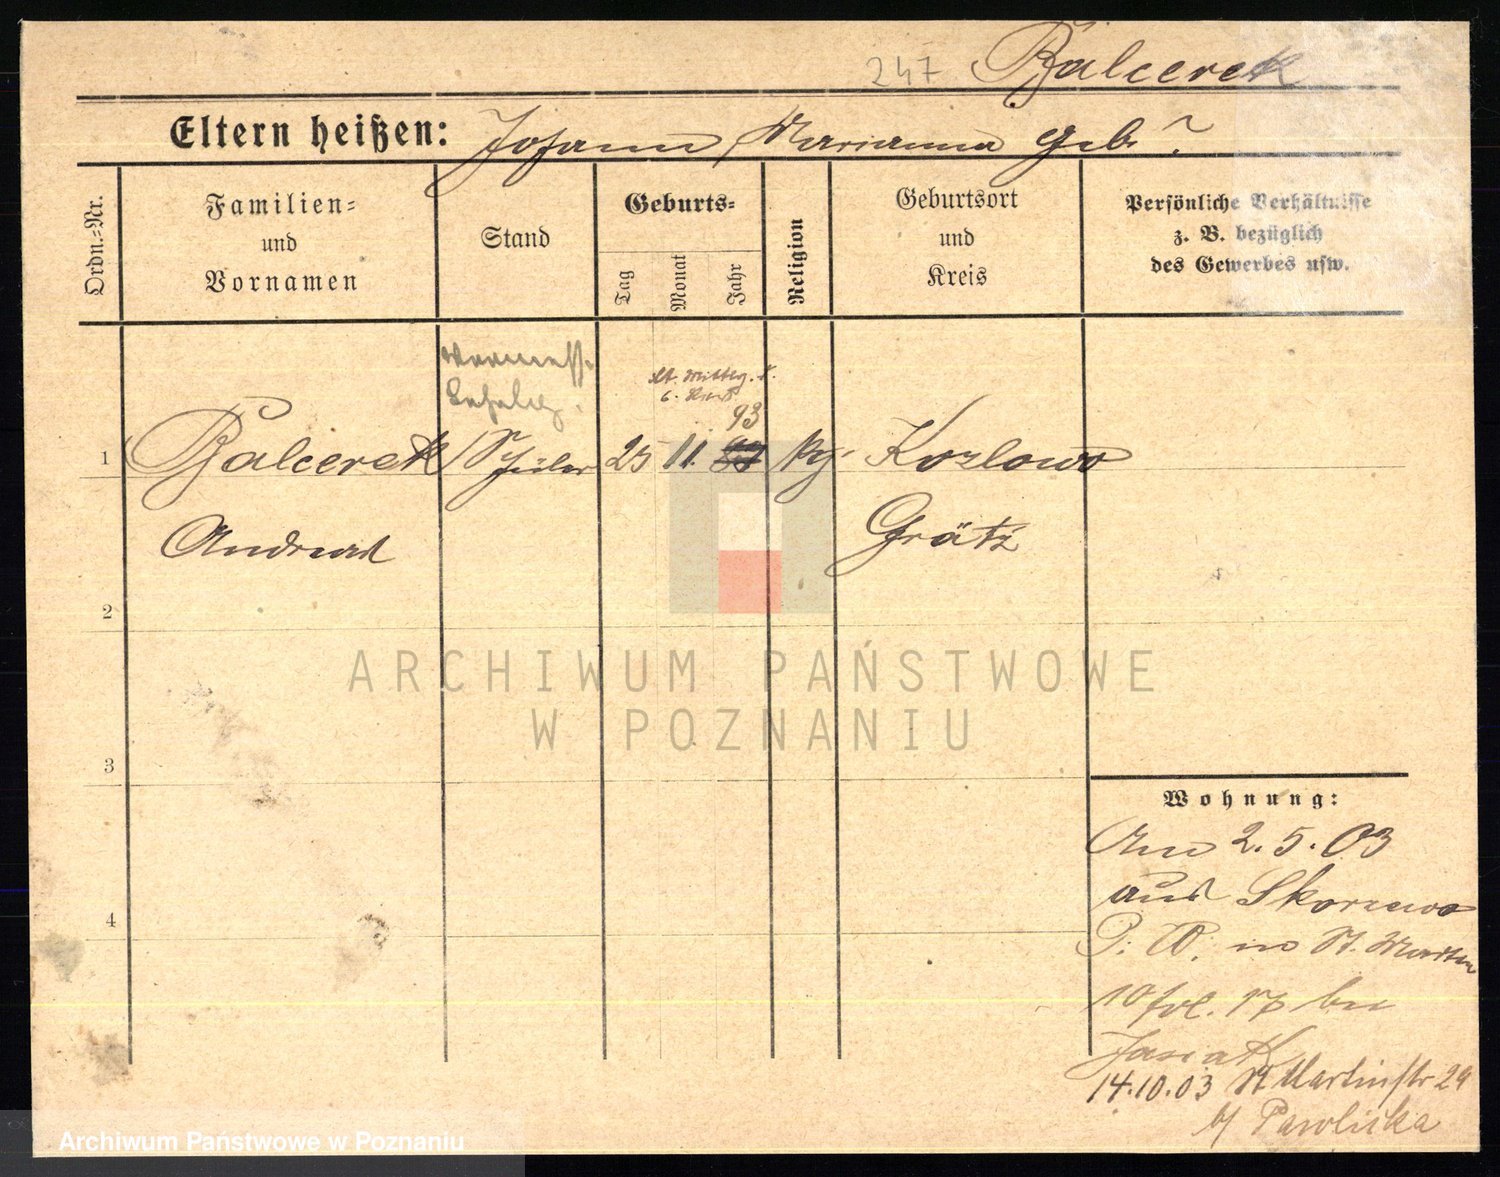 247 Balcerek
Eltern heißen: Johann, Marianna geb ?
Ordn.=Nr.
Familien=
und
Vornamen
Stand
Geburts=
Tag
Monat
Jahr
Religion
Geburtsort
und
Kreis
Persönliche Verhältnisse
z. B. bezüglich
des Gewerbes usw.
93
1 Balcerek Schüler 25 11. Kozlowo
Andreas Grätz
2
3
4
Wohnung:
An 2. 5. 03
aus
St. Martin
10
Jasiak
14.10.03 St Martinstr 29
b/ Pawlicka
ARCHIWUM PAŃSTWOWE
W POZNANIU
Archiwum Państwowe w Poznaniu